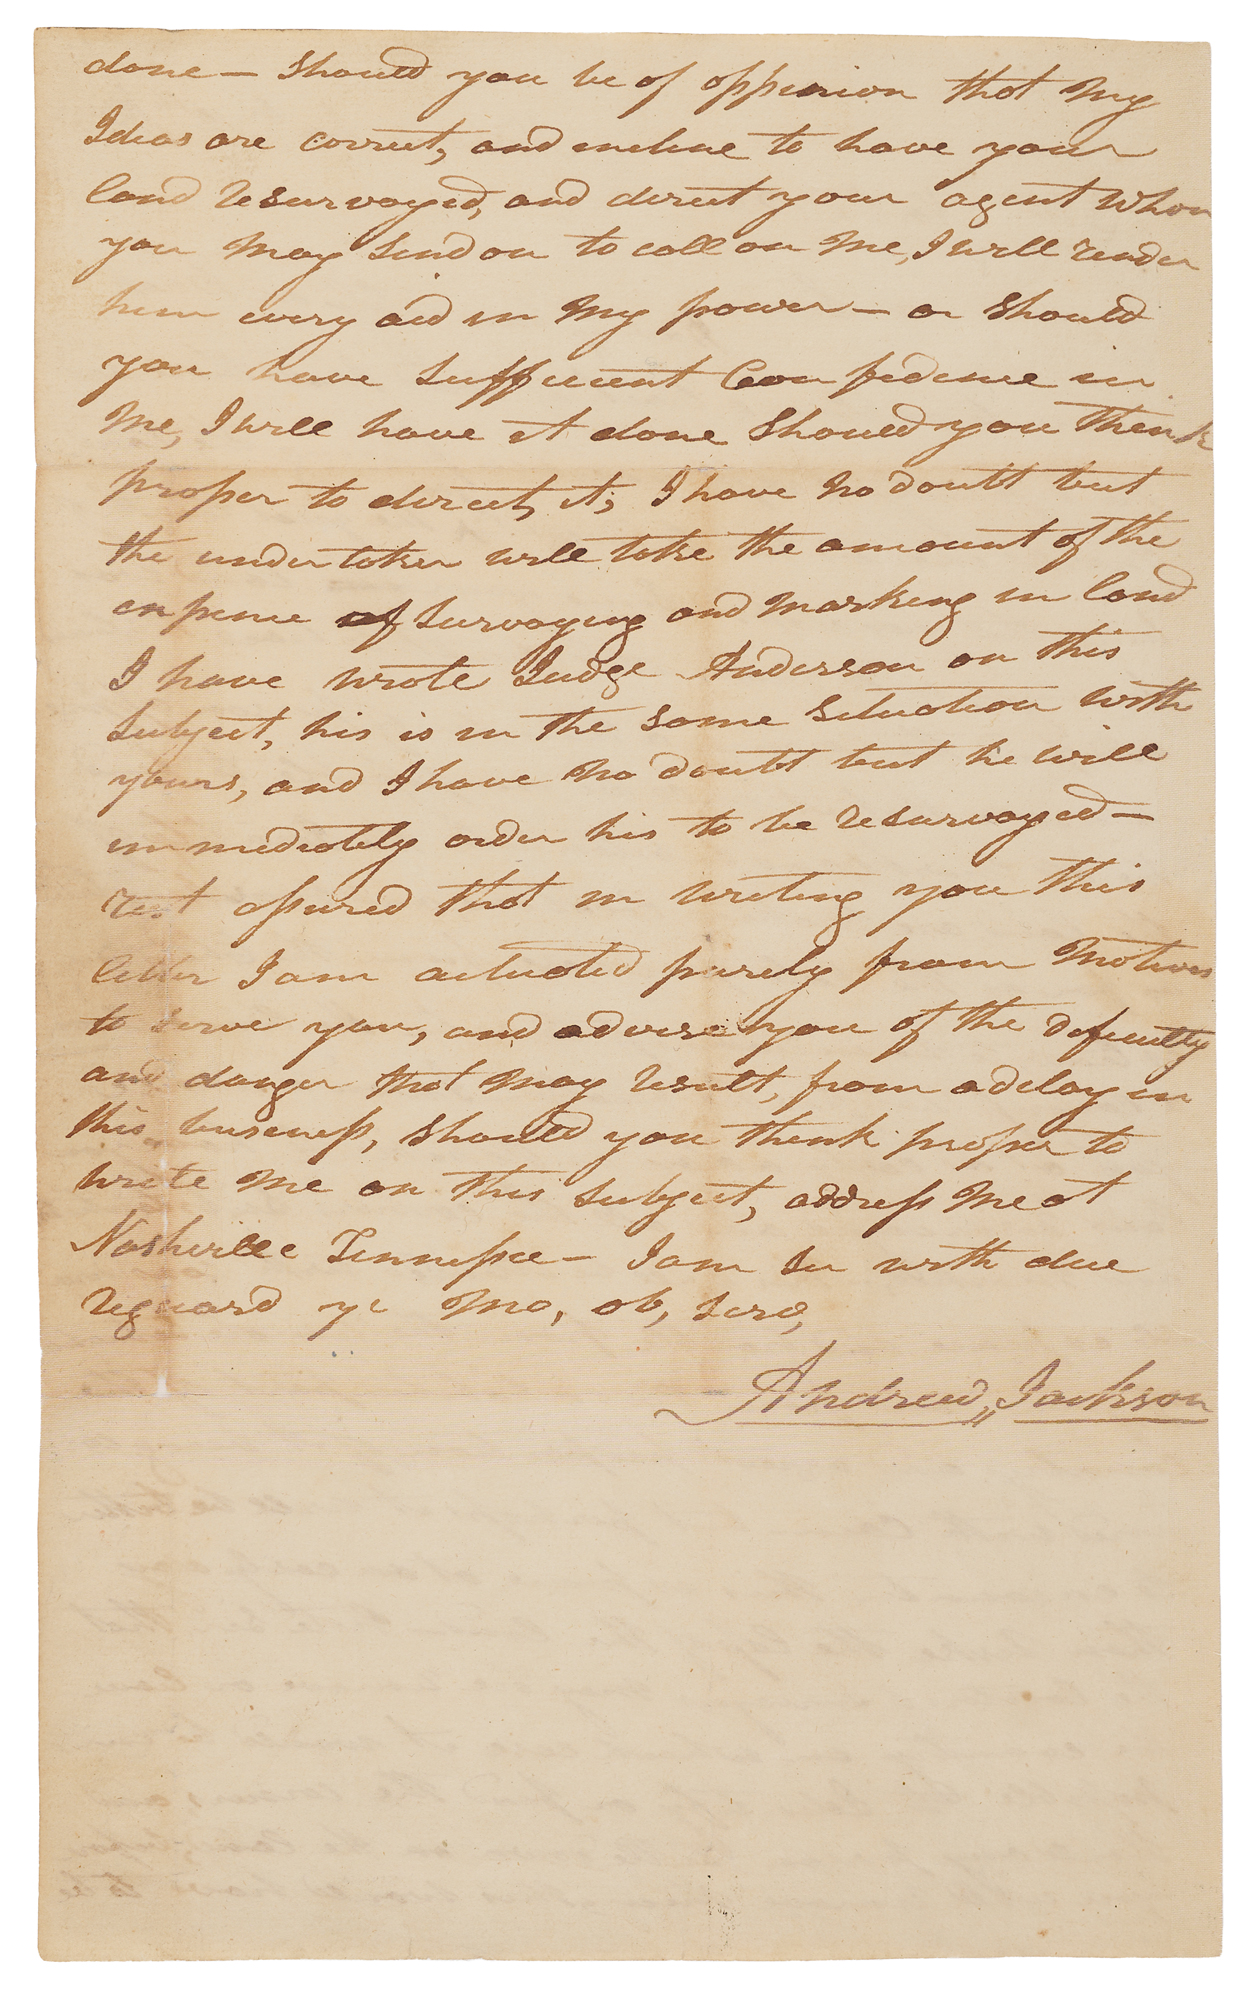 done — Should you be of oppinion that my
Ideas are correct, and incline to have your
land resurvayed, and direct your agent whom
you may send on to call on me, I will render
him every aid in my power — or should
you have sufficient Confidence in
me, I will have it done should you think
proper to direct, it; I have no doubt but
the undertaker will take the amount of the
expence of survaying and marking in land
I have wrote Judge Anderson on this
subject, his is in the same situation with
yours, and I have no doubt but he will
immediately order his to be resurvayed —
rest assured that in writing you this
letter I am actuated purely from motives
to serve you, and advise you of the dificulty
and danger that may result, from a delay in
this business, should you think proper to
write me on this subject, address me at
Nashville Tennessee — I am Sir with due
reguard ye mo, ob, serv,
Andrew Jackson